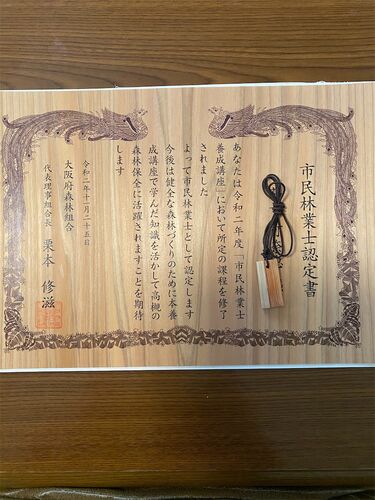 市民林業士認定書
あなたは令和二年度「市民林業士
養成講座」において所定の課程を修了
されました
よって市民林業士として認定します
今後は健全な森林づくりのために本養
成講座で学んだ知識を活かして高槻の
森林保全に活躍されますことを期待
します
令和二年十二月二十五日
大阪府森林組合
代表理事組合長 栗本 修滋